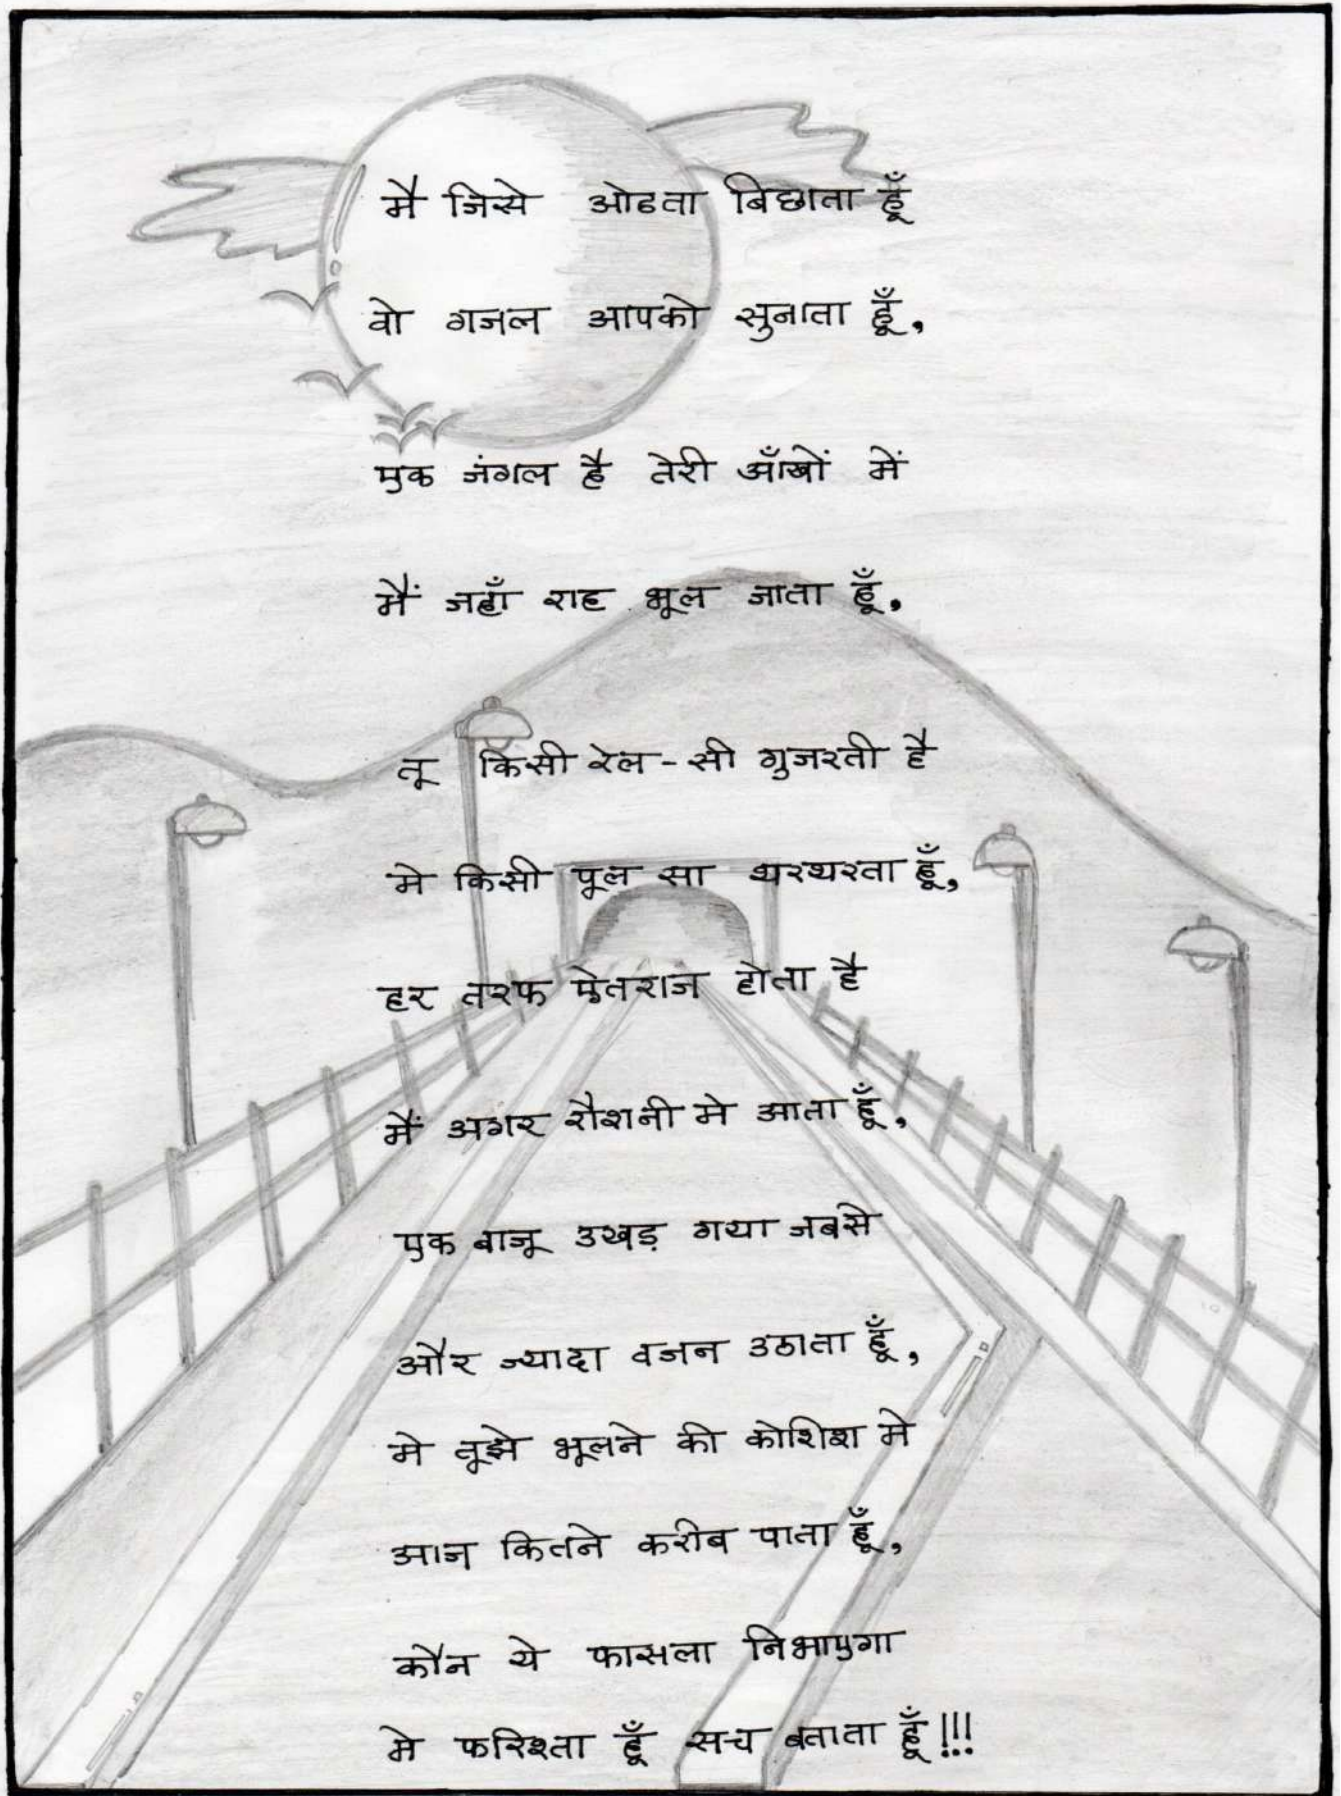 मै जिसे ओढता बिछाता हूँ
वो गजल आपको सुनाता हूँ,
एक जंगल है तेरी आँखों में
मैं जहाँ राह भूल जाता हूँ,
तू किसी रेल-सी गुजरती है
मे किसी पूल सा थरथरता हूँ,
हर तरफ ऐतराज होता है
मैं अगर रौशनी मे आता हूँ,
एक बाजू उखड़ गया जबसे
और ज्यादा वजन उठाता हूँ,
मे तूझे भूलने की कोशिश मे
आज कितने करीब पाता हूँ,
कौन ये फासला निभाएगा
मे फरिश्ता हूँ सच बताता हूँ!!!